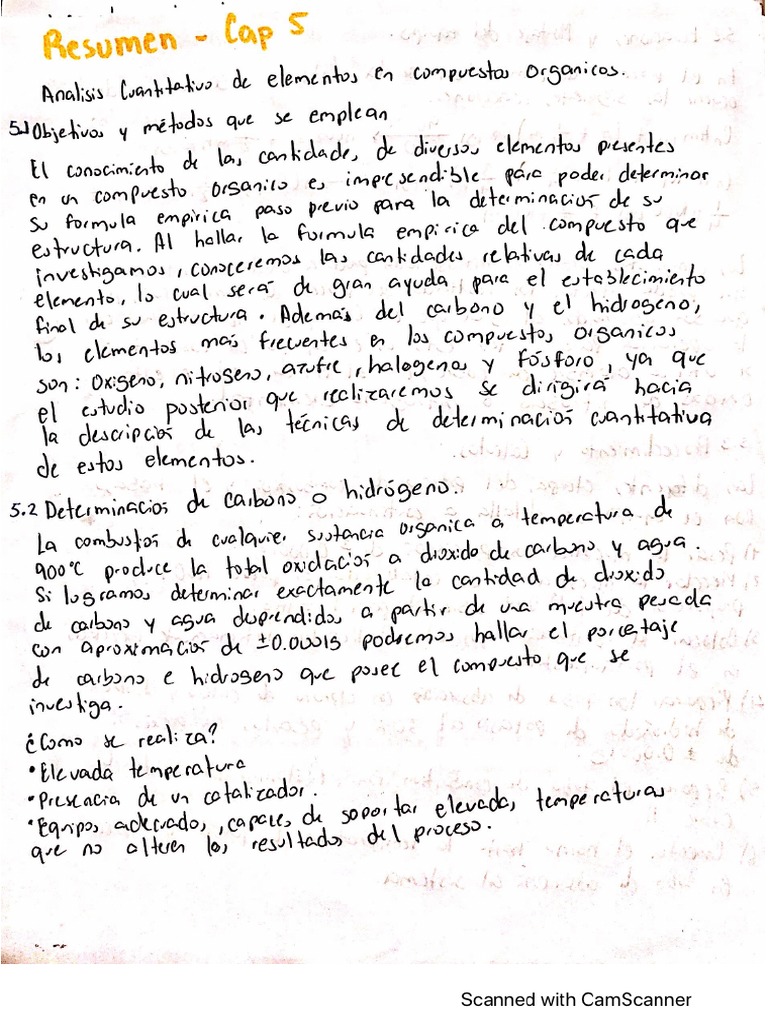 Resumen - Cap 5
Analisis Cuantitativo de elementos en compuestos Organicos.
5.1 Objetivos y métodos que se emplean
El conocimiento de las cantidades de diversos elementos presentes
en un compuesto organico es impresendible para poder determinar
su formula empirica paso previo para la determinacion de su
estructura. Al hallar la formula empirica del compuesto que
investigamos, conoceremos las cantidades relativas de cada
elemento, lo cual será de gran ayuda para el establecimiento
final de su estructura. Además del carbono y el hidrogeno,
los elementos más frecuentes en los compuestos organicos
son: Oxigeno, nitrogeno, azufre, halogenos y fósforo, ya que
el estudio posterior que realizaremos se dirigirá hacia
la descripcion de las técnicas de determinacion cuantitativa
de estos elementos.
5.2 Determinacion de carbono o hidrógeno.
La combustos de cualquier sustancia organica a temperatura de
900°C produce la total oxidacion a dioxido de carbono y agua.
Si logramos determinar exactamente la cantidad de dioxido
de carbono y agua desprendidos a partir de una muestra pesada
con aproximacion de ±0.00015 podremos hallar el porcetaje
de carbono e hidrogeno que posee el compuesto que se
investiga.
¿Como se realiza?
•Elevada temperatura
•Presencia de un catalizador.
•Equipos adecuados, capaces de soportar elevadas temperaturas
que no alteren los resultados del proceso.
Scanned with CamScanner